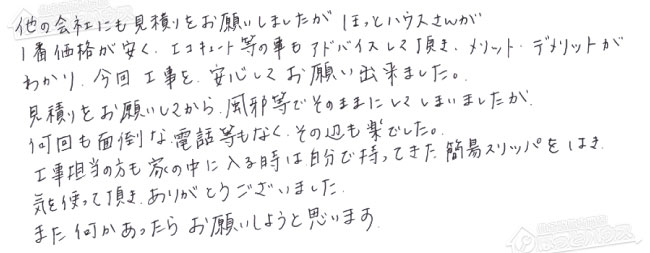 他の会社にも見積りをお願いしましたが ほっとハウスさんが
1番価格が安く、エコキュート等の事もアドバイスして頂き、メリット・デメリットが
わかり、今回工事を、安心してお願い出来ました。
見積りをお願いしてから、風邪等でそのままにしてしまいましたが、
何回も面倒な電話等もなく、その辺も楽でした。
工事担当の方も家の中に入る時は自分で持ってきた簡易スリッパをはき
気を使って頂き、ありがとうございました。
また何かあったらお願いしようと思います。